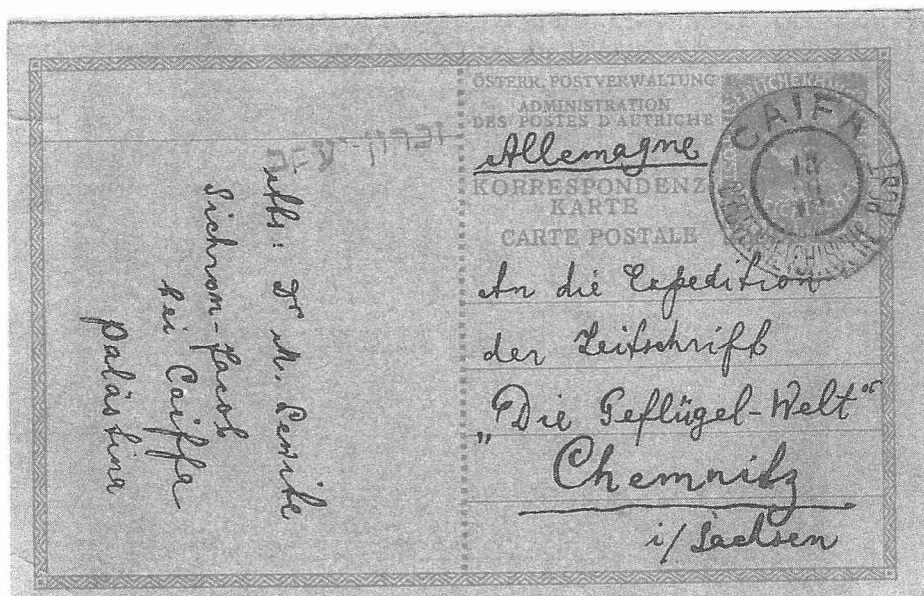 ÖSTERR. POSTVERWALTUNG
ADMINISTRATION
DES POSTES D'AUTRICHE
Allemagne
KORRESPONDENZ-
KARTE
CARTE POSTALE
CAIFA
ÖSTERREICHISCHE POST
An die Expedition
der Zeitschrift
„Die Geflügel-Welt“
Chemnitz
i/Sachsen
Abs: Dr M. Lewite
Sichron-Jacob
bei Caiffa
Palästina